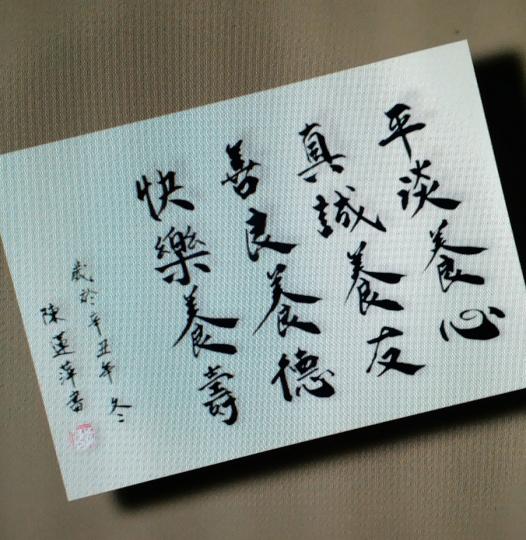 平談養心
真誠養友
善良養德
快樂養壽
歲於辛丑年冬
陳蓮萍書